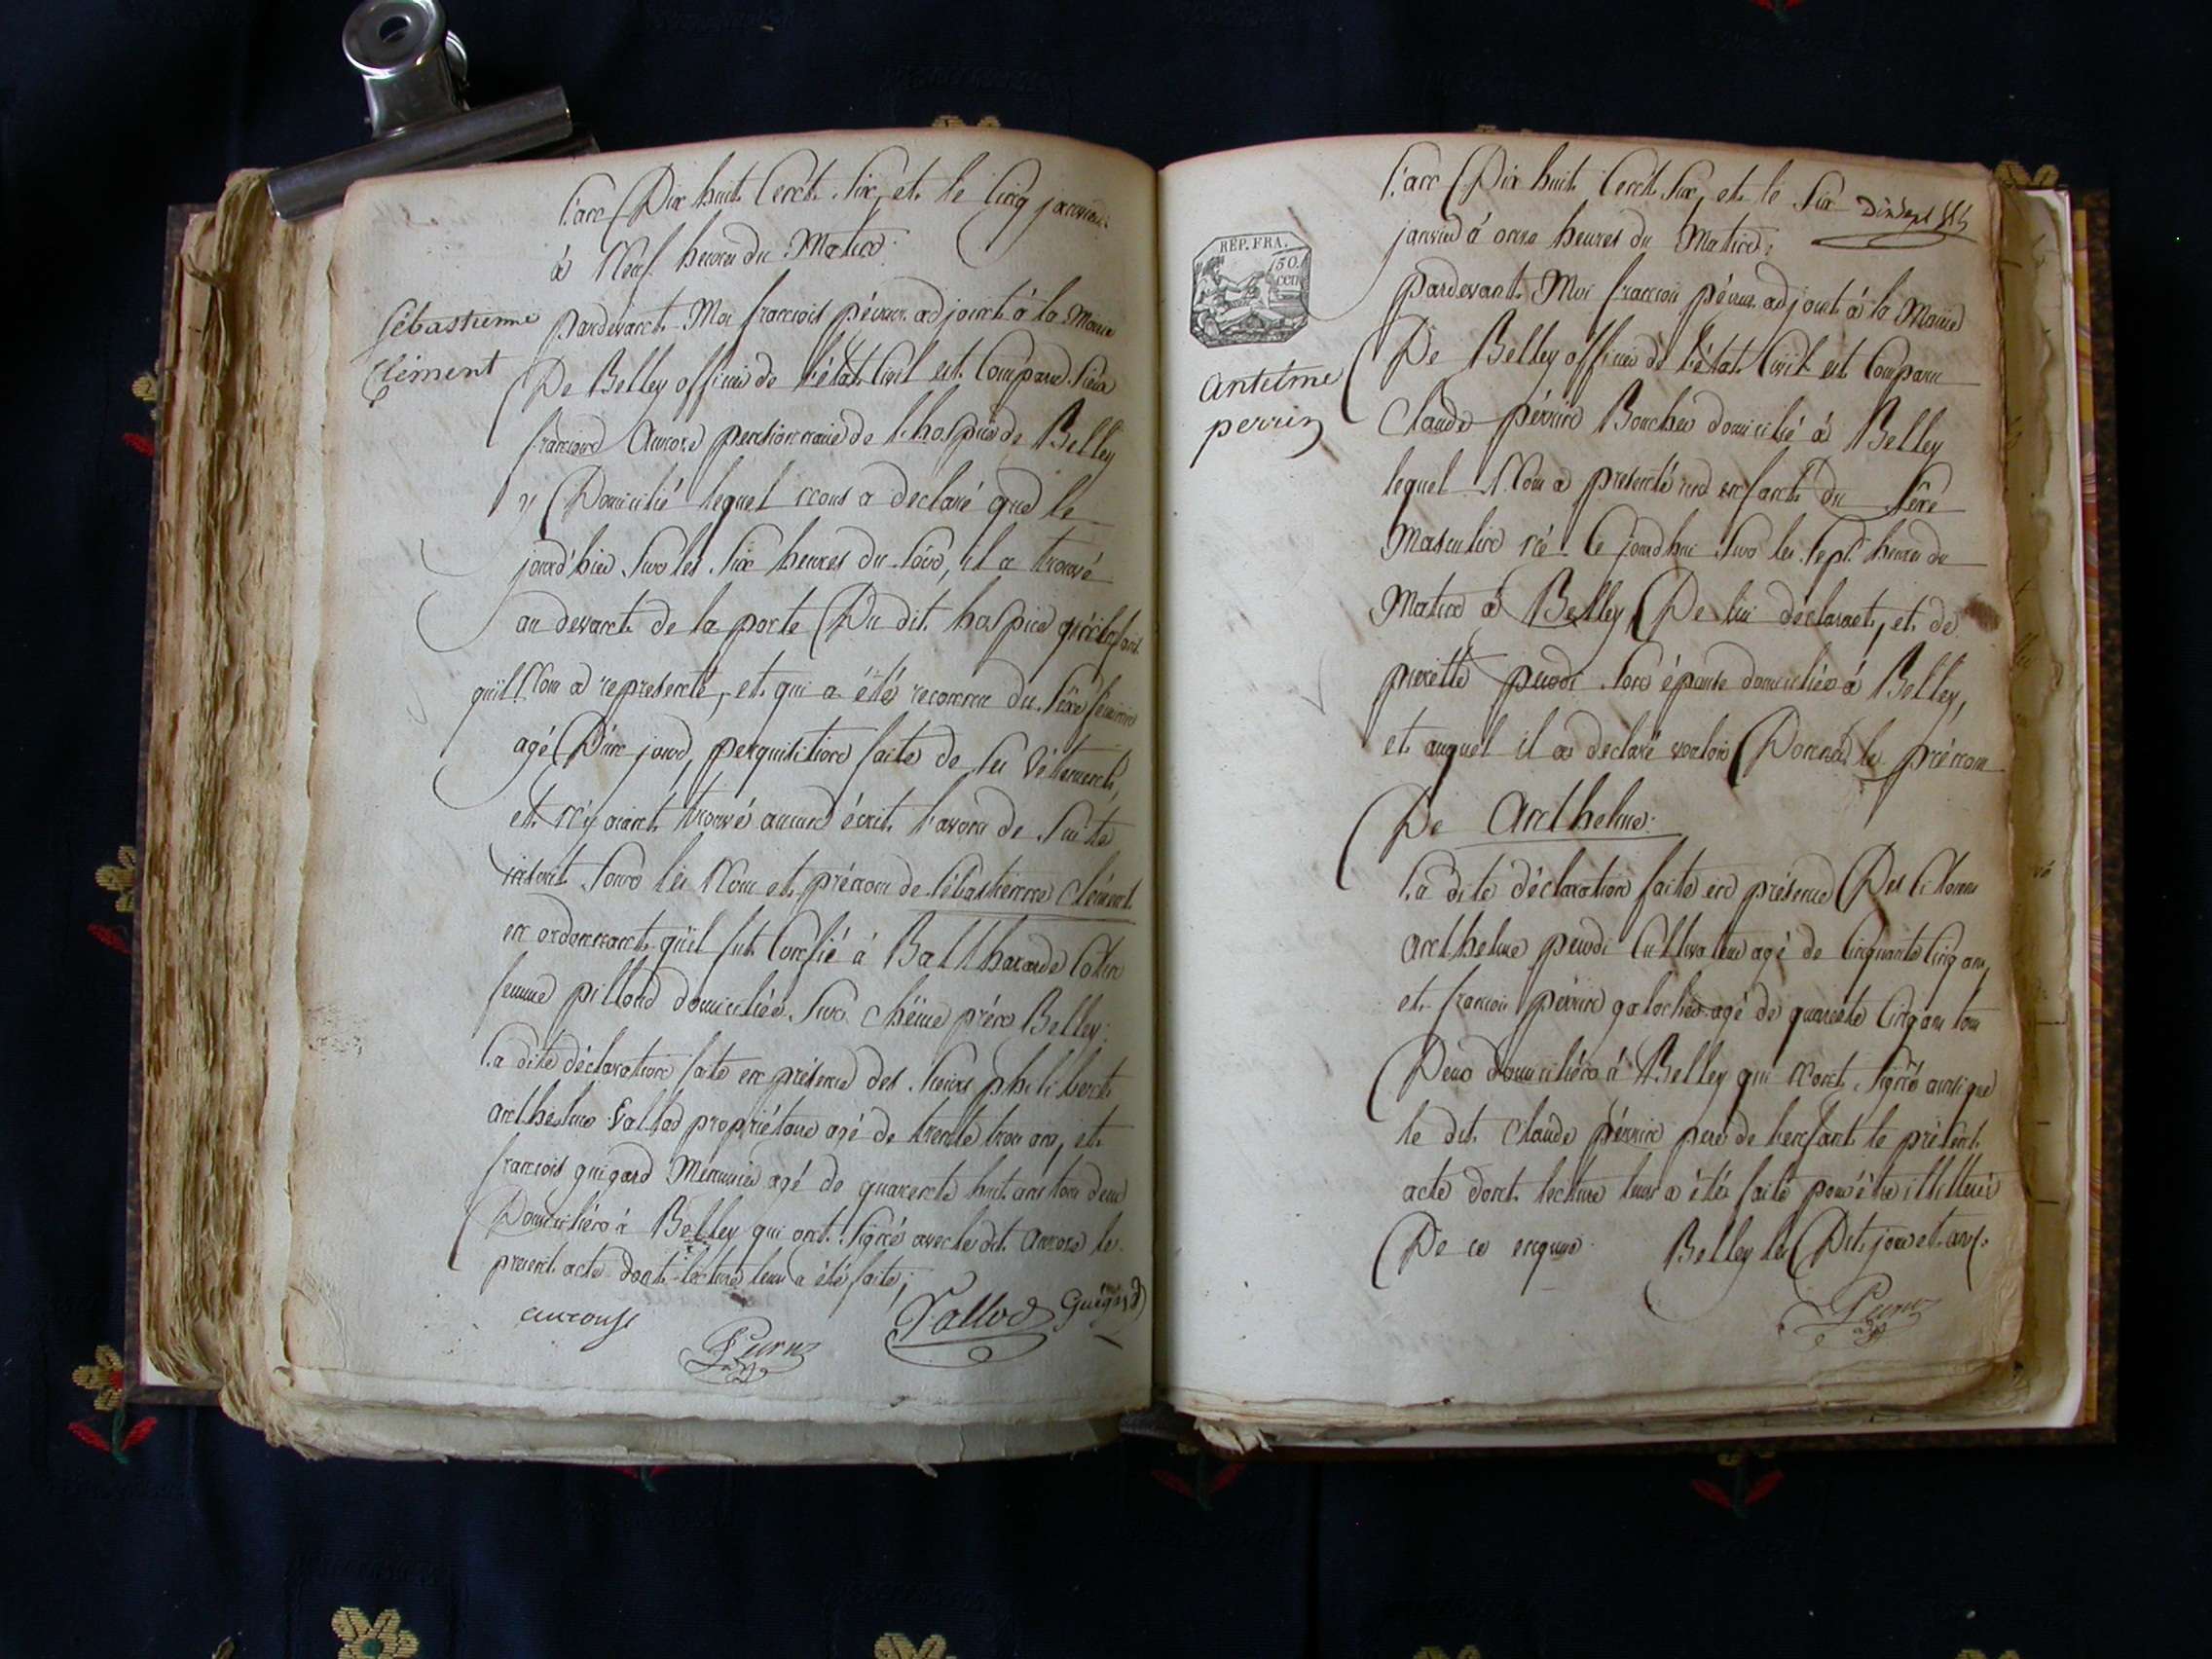 L'an Dix huit Cent Six, et le Cinq janvier
à Neuf heures du Matin:
Sébastienne
Clément
pardevant Moi françois péysson adjoint à la Mairie
De Belley officier de l'état Civil est Comparu Sieur
Aurore pentionnaire de l'hospice de Belley
y Domicilié lequel nous a declaré que le
jourd'hier Sur les Six heures du Soir, il a trouvé
au devant de la porte Du dit hospice
qu'il Nous a representé, et qui a été reconnu du Séxe féminin
agé D'un jour, perquisition faite de ses Vétements,
et n'y aiant trouvé aucun écrit l'avons de Suite
inscrit Sous les Nom et prénom de Sébastienne Clément
en ordonnant qu'il fut Confié à Balthazarde Cotin
femme pilloud domiciliée Sur Chême prés Belley:
La dite déclaration faite en présence des Sieurs philibert
anthelme Vallod propriétaire agé de trente trois ans, et
françois guigard Menuisier agé de quarente huit ans tous deux
Domiciliés à Belley qui ont Signé avec le dit Aurore le
present acte dont lecture leur a été faite;
Vallod
Guigard
L'an Dix huit Cent Six, et le Six
Dix Sept
janvier à onze heures du Matin:
REP. FRA.
50.
cen
Antelme
perrin
pardevant Moi françois adjoint à la Mairie
De Belley officier de l'état Civil est Comparu
Claude pérrin Boucher domicilié à Belley
lequel Nous a presenté un enfant Du Séxe
Masculin né Ce jourd'hui Sur les Sept heures du
Matin à Belley De lui déclarant, et de
pierrette son épouse domiciliés à Belley,
et auquel il a declaré vouloir Donner le prénom
De Anthelme:
La dite déclaration faite en présence Des
anthelme Cultivateur agé de Cinquante Cinq ans,
et françois pérrin galochier agé de quarente Cinq ans tous
Deux domiciliés à Belley qui n'ont Signé ainsi que
le dit Claude pérrin pere de l'enfant le présent
acte dont lecture leur a été faite pour être illitterés
De ce enquis. Belley les Dits jour et an.